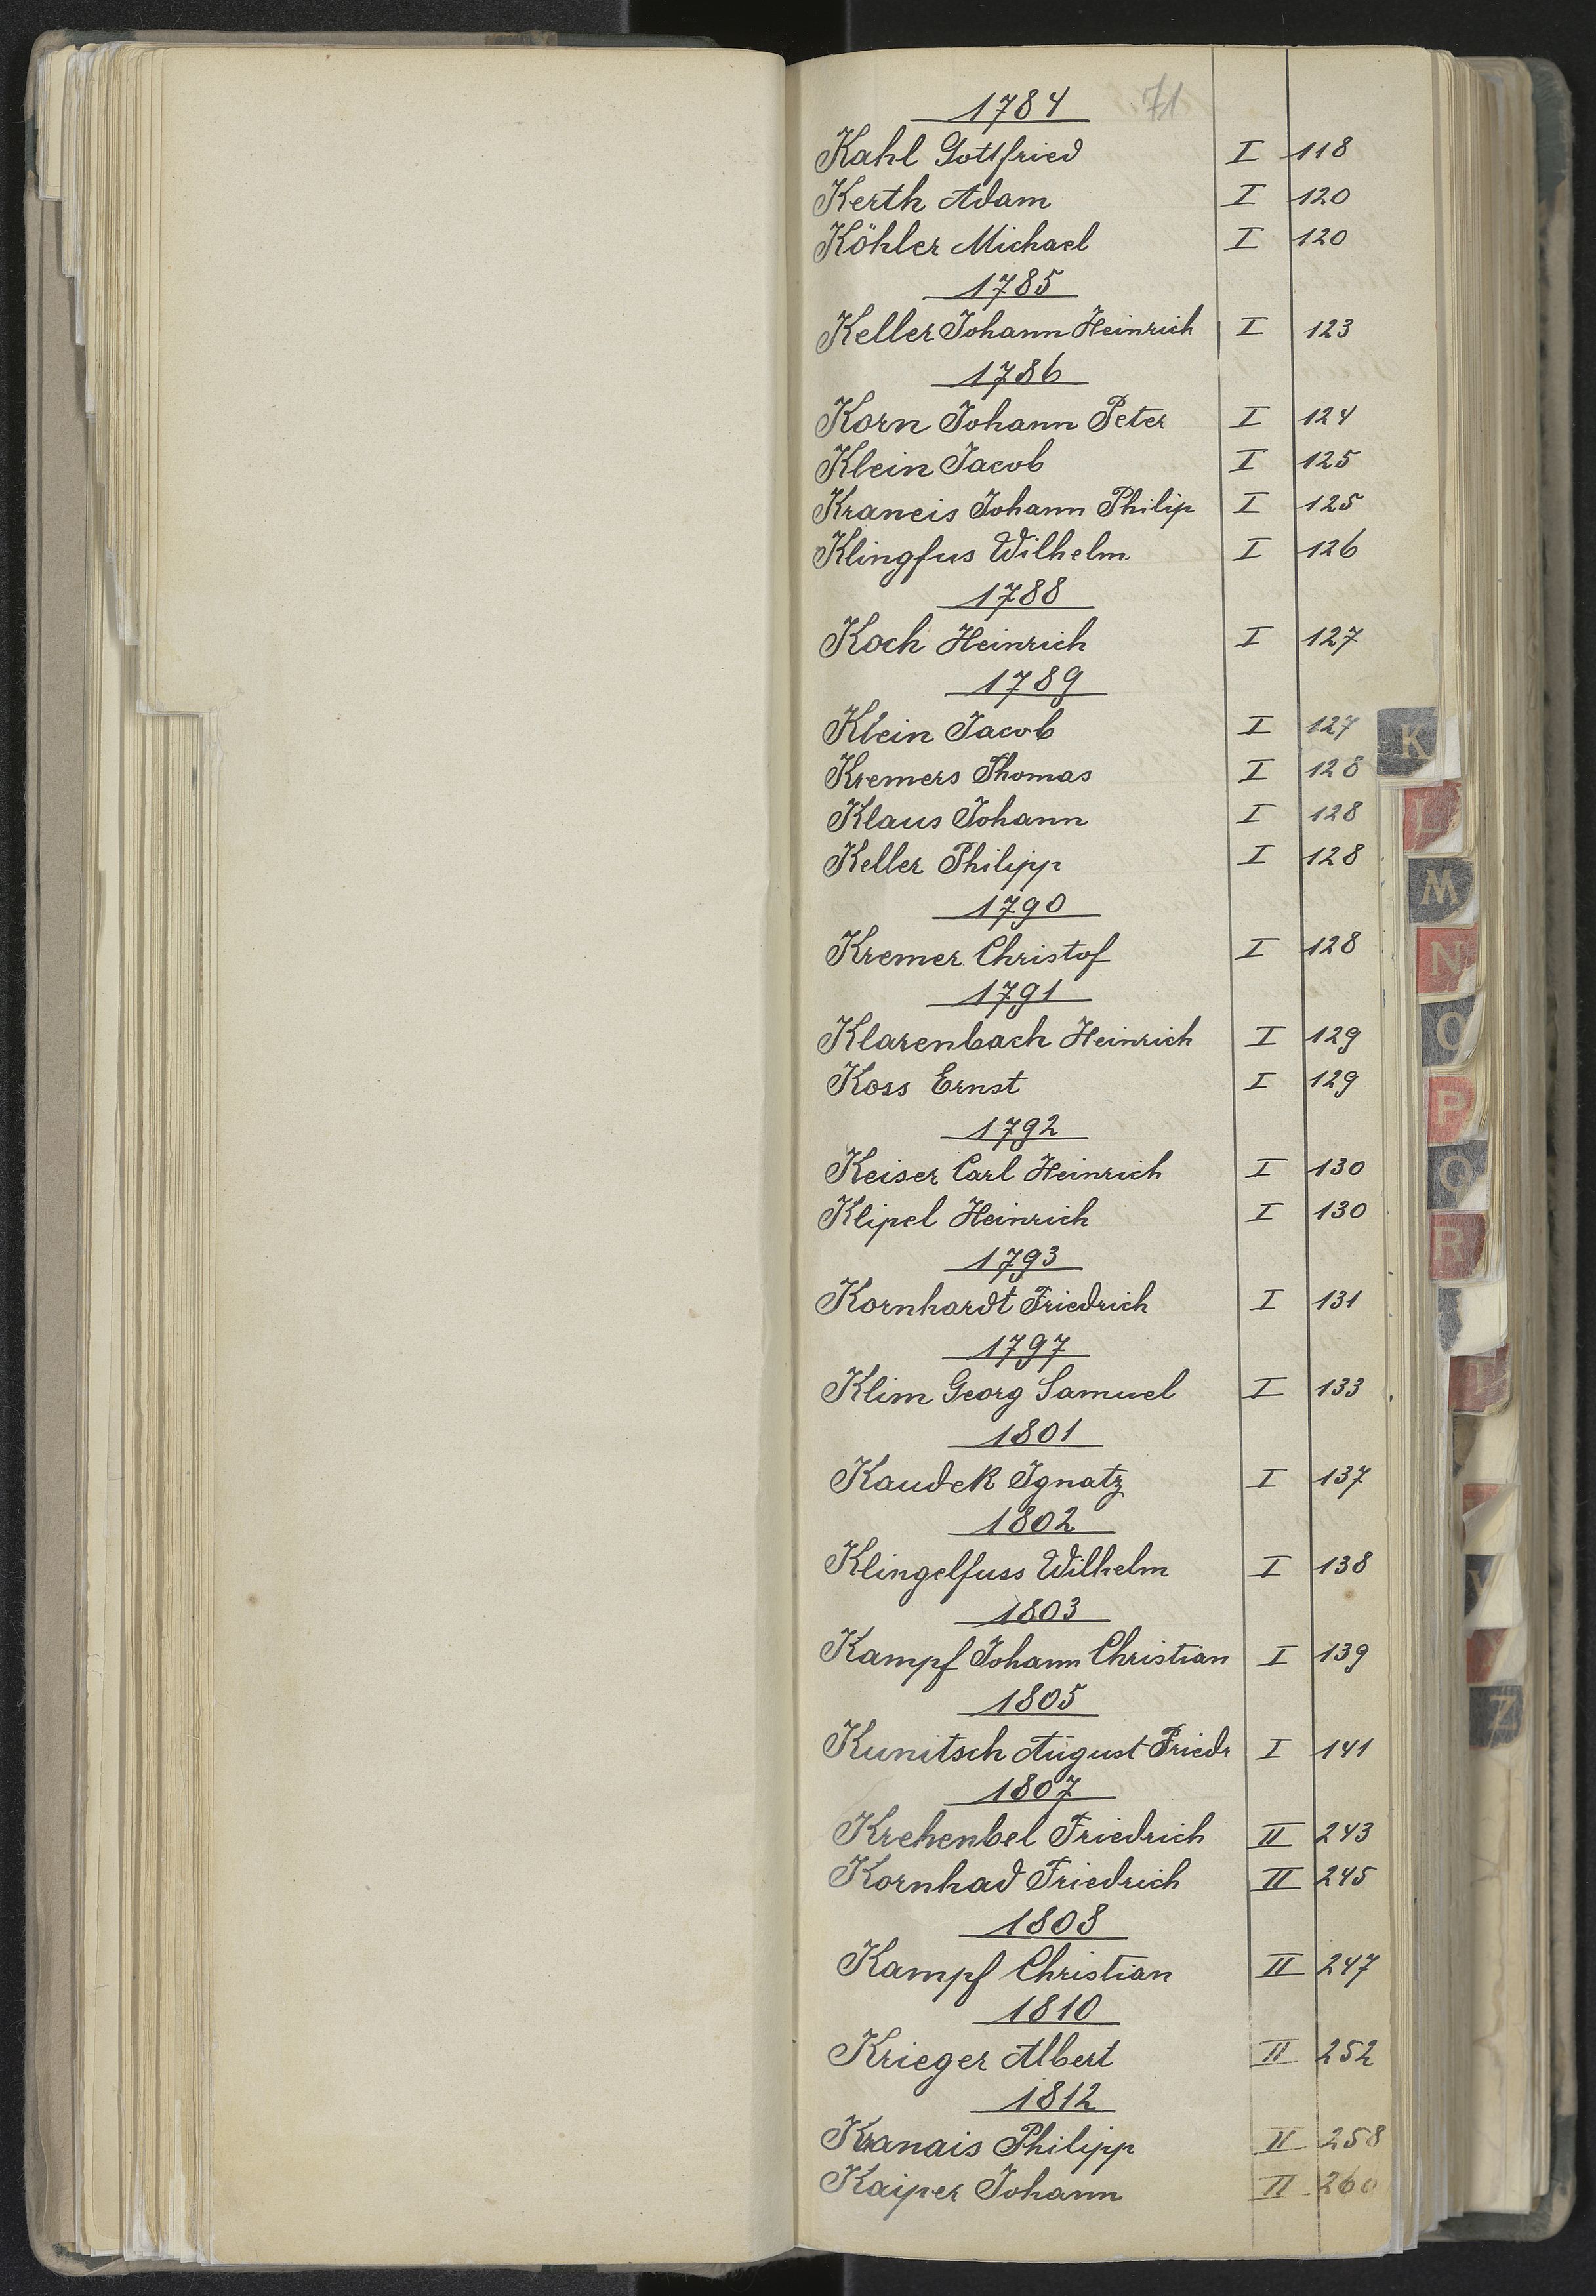 71
1784
Kahl Gottfried I 118
Kerth Adam I 120
Köhler Michael I 120
1785
Keller Johann Heinrich I 123
1786
Korn Johann Peter I 124
Klein Jacob I 125
Kraneis Johann Philip I 125
Klingfus Wilhelm I 126
1788
Koch Heinrich I 127
1789
Klein Jacob I 127
Kremers Thomas I 128
Klaus Johann I 128
Keller Philipp I 128
1790
Kremer Christof I 128
1791
Klarenbach Heinrich I 129
Koss Ernst I 129
1792
Keiser Carl Heinrich I 130
Klipel Heinrich I 130
1793
Kornhardt Friedrich I 131
1797
Klim Georg Samuel I 133
1801
Kaudek Ignatz I 137
1802
Klingelfuss Wilhelm I 138
1803
Kampf Johann Christian I 139
1805
Kunitsch August Friedr I 141
1807
Krehenbel Friedrich II 243
Kornhad Friedrich II 245
1808
Kampf Christian II 247
1810
Krieger Albert II 252
1812
Kranais Philipp II 258
Kaiper Johann II 260
K
L
M
N
O
P
Q
R
Z